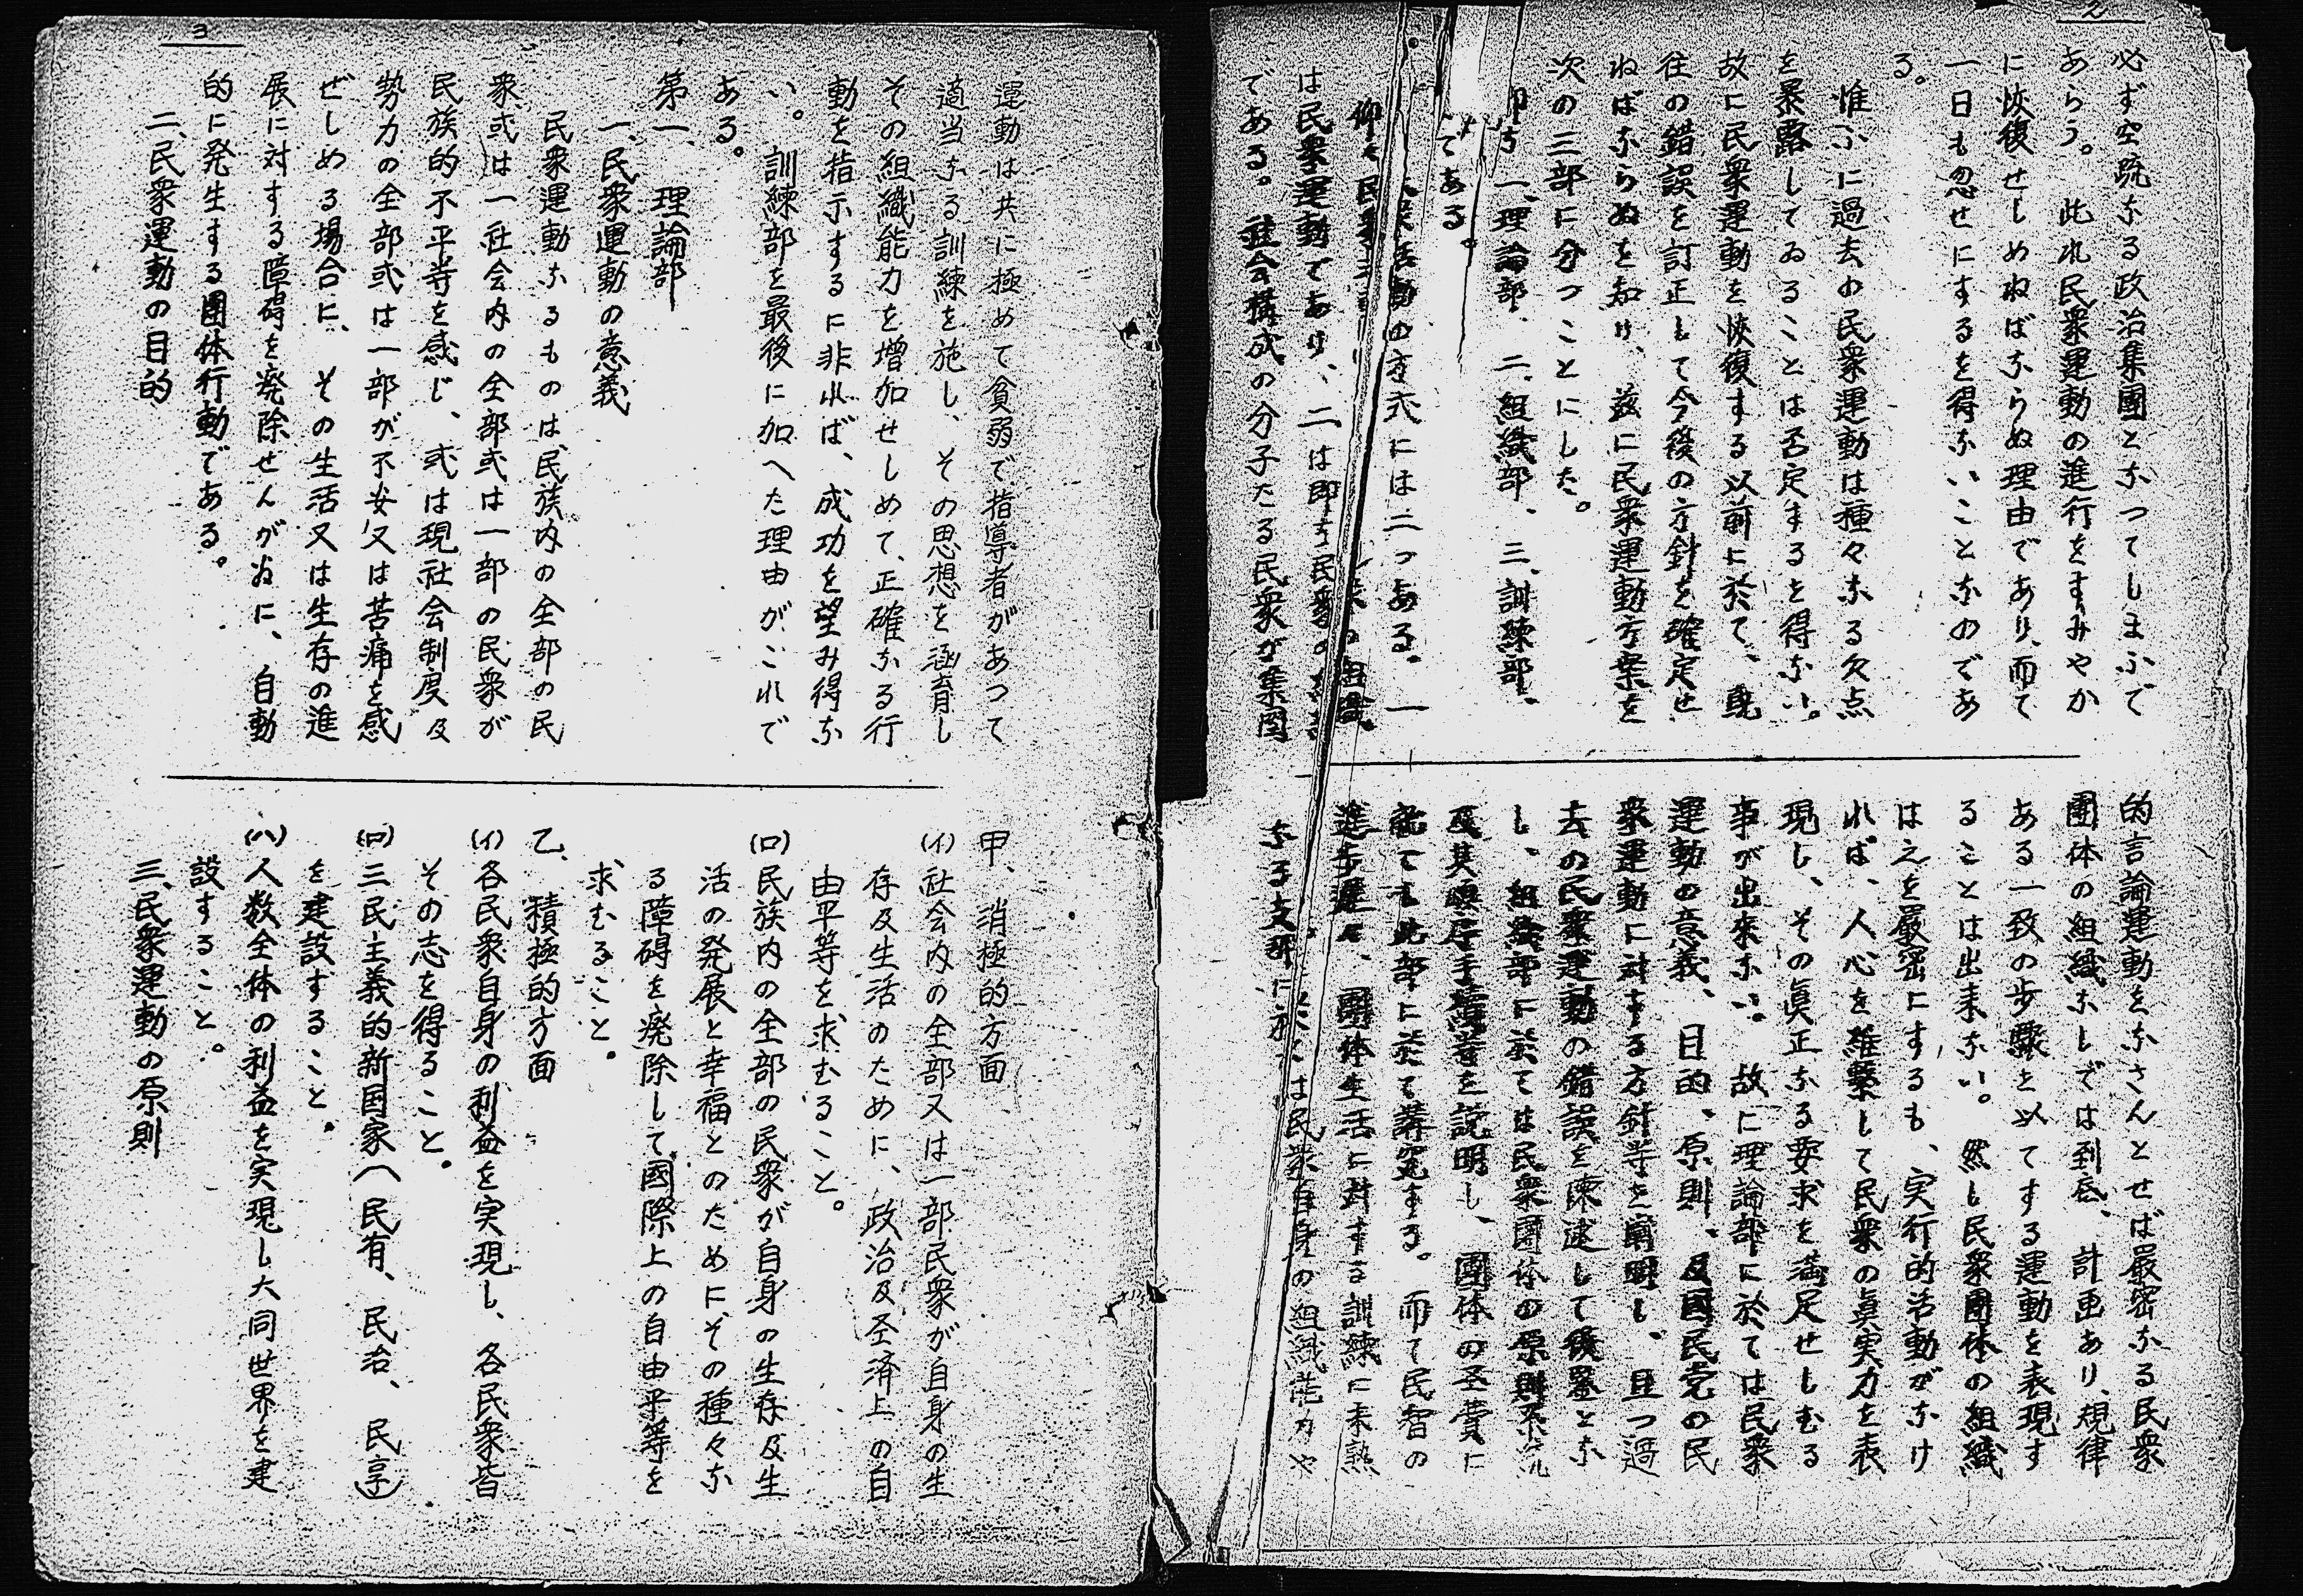 2
必ず空疏なる政治集團となつてしまふで
あらう。此れ民衆運動の進行をすみやか
に恢復せしめねばならぬ理由であり、而て
一日も忽せにするを得ないことなのであ
る。
惟ふに過去の民衆運動は種々なる欠点
を暴露してゐることは否定するを得ない。
故に民衆運動を恢復する以前に於て、既
往の錯誤を訂正して今後の方針を確定せ
ねばならぬを知り、茲に民衆運動方案を
次の三部に分つことにした。
即ち 一、理論部、二、組織部、三、訓練部、
てある。
仰々民衆活動の方式には二つある。一
は民衆運動であり、二は即ち民衆の
である。社会構成の分子たる民衆が集団
的言論運動をなさんとせば嚴密なる民衆
團体の組織なしでは到底、計画あり、規律
ある一致の歩驟を以てする運動を表現す
ることは出来ない。然し民衆團体の組織
は之を嚴密にするも、実行的活動がなけ
れば、人心を維繋して民衆の眞実力を表
現し、その眞正なる要求を満足せしむる
事が出來ない。故に理論部に於ては民衆
運動の意義、目的、原則、及國民党の民
衆運動に対する方針等を闡明し、且つ過
去の民衆運動の錯誤を陳述して後鑒とな
し、組織部に於ては民衆團体の原則系統
及其順序手續等を説明し、團体の圣費に
就ても此部に於て講究する。而て民智の
進歩遅々、團体生活に対する訓練に未熟
なる支那に於
は民衆自身の組織能力や
3
運動は共に極めて貧弱で指導者があつて
適当なる訓練を施し、その思想を涵育し
その組織能力を増加せしめて、正確なる行
動を指示するに非れば、成功を望み得な
い。訓練部を最後に加へた理由がこれで
ある。
第一、理論部
一、民衆運動の意義
民衆運動なるものは、民族内の全部の民
衆或は一社会内の全部或は一部の民衆が
民族的不平等を感じ、或は現社会制度及
勢力の全部或は一部が不安又は苦痛を感
ぜしめる場合に、その生活又は生存の進
展に対する障碍を廃除せんが為に、自動
的に発生する團体行動である。
二、民衆運動の目的
甲、消極的方面
(イ)社会内の全部又は一部民衆が自身の生
存及生活のために、政治及圣済上の自
由平等を求むること。
(ロ)民族内の全部の民衆が自身の生存及生
活の発展と幸福とのために、その種々な
る障碍を廃除して國際上の自由平等を
求むること。
乙、積極的方面
(イ)各民衆自身の利益を実現し、各民衆皆
その志を得ること。
(ロ)三民主義的新国家(民有、民治、民享)
を建設すること。
(ハ)人数全体の利益を実現し大同世界を建
設すること。
三、民衆運動の原則